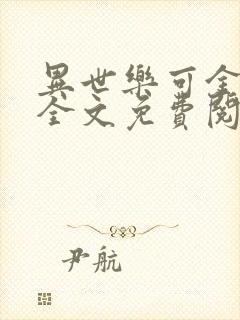 異世樂可全
全文免費閱
尹航